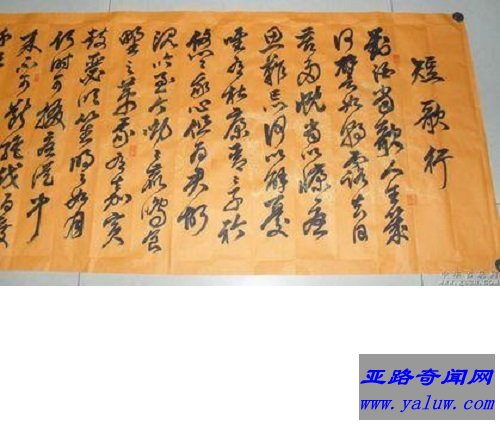 短歌行
對酒當歌人生幾
何譬如朝露去日
苦多慨當以慷憂
思難忘何以解憂
唯有杜康青々子衿
悠々我心但为君故
沉吟至今呦々鹿鳴食
野之苹我有嘉賓
鼓瑟吹笙明々如月
何時可掇憂從中
來不可斷越陌度
亚路奇闻网
www.yaluw.com